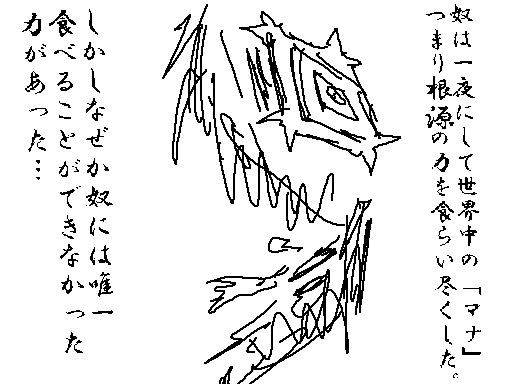 奴は一夜にして世界中の「マナ」
つまり根源の力を食らい尽くした。
しかしなぜか奴には唯一
食べることができなかった
力があった…